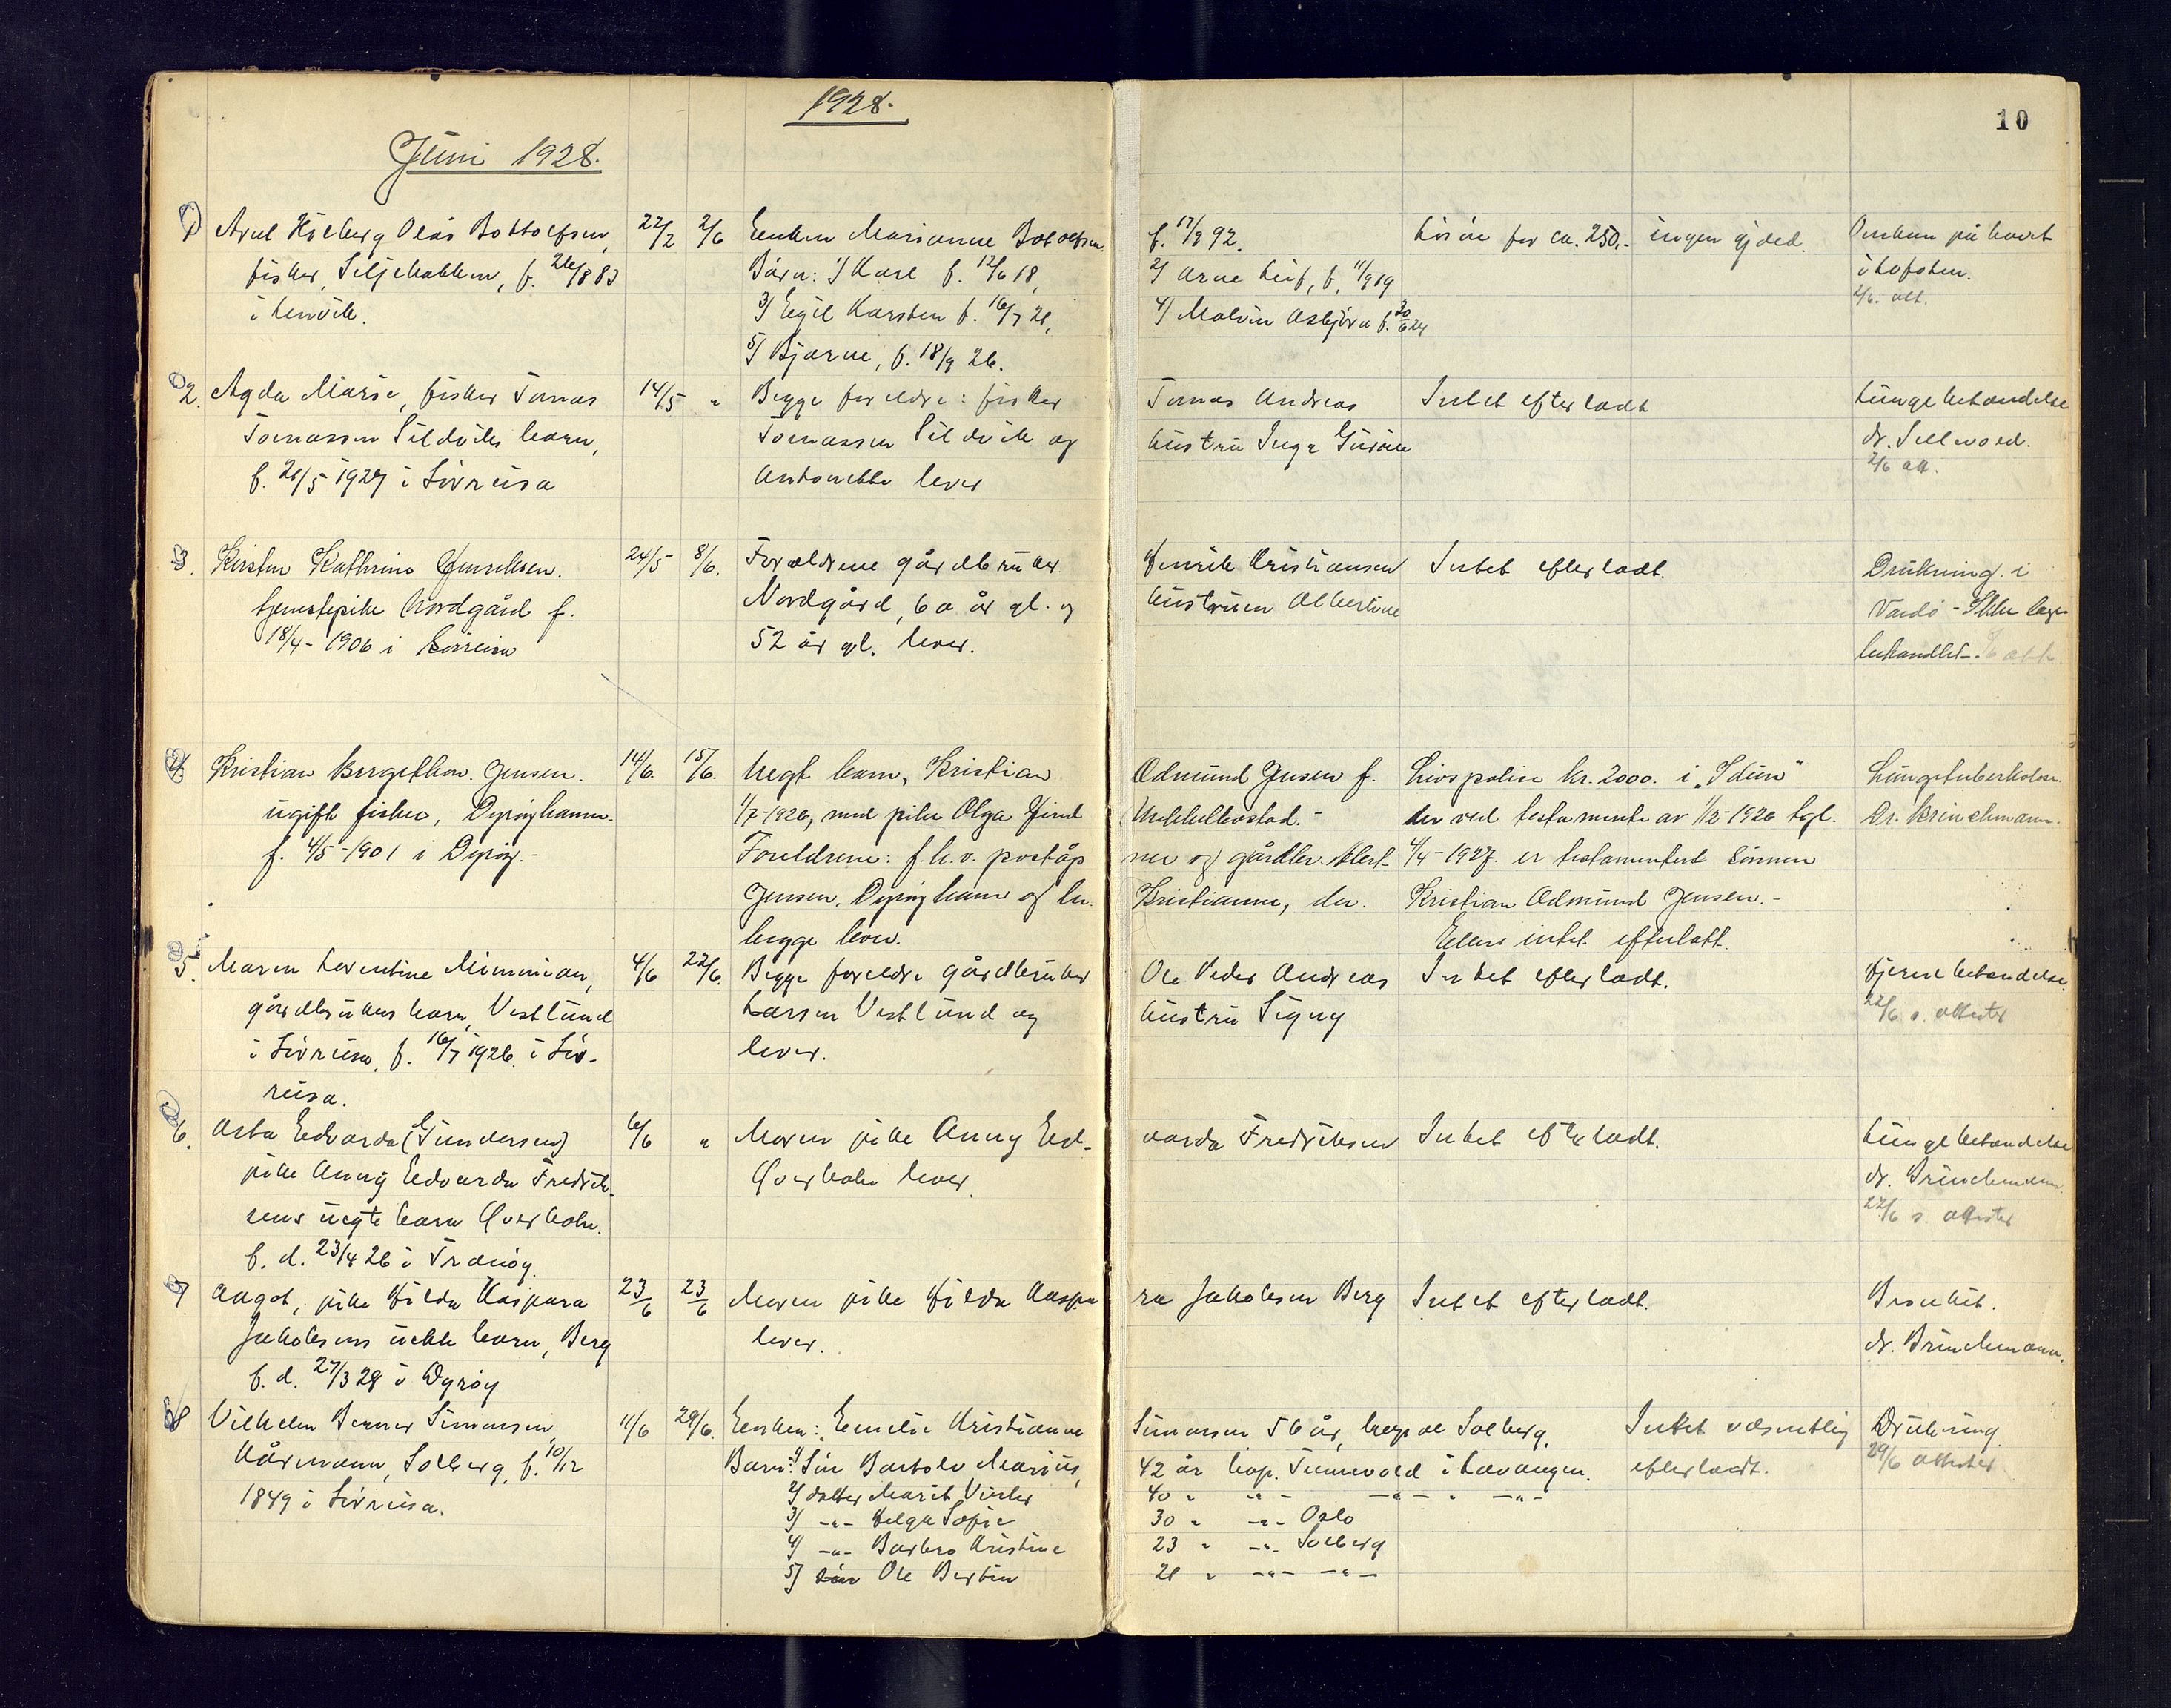 1928.
10
Juni 1928.
1) Arnt Hilberg Olai Bottolfsen,
fisker, Siljehakken, f. 26/8 83
i Lenvik.
22/2
2/6
Enken Marianne Botolfsen
Barn: 1/ Karl f. 12/6 18,
3/ Egil Karsten f. 16/7 21,
5/ Bjarne, f. 18/9 26.
f. 17/9 92.
2/ Arne Leif, f. 11/9 19
4/ Malvin Asbjörn f. 30/6 24
Lösöre for ca. 250.- ingen gjeld.
Omkom på havet
i Lofoten.
2/6. att.
2. Agda Marie, fisker Tomas
Tomassen Sildviks barn,
f. 21/5 1927 i Sörreisa
14/5
"
Begge foreldre: fisker
Tomassen Sildvik og
Antonette lever
Tomas Andreas
hustru Inga
Intet efterladt
Lungebetændelse
dr. Sellevold.
2/6 att.
3. Kirsten Kathrine Henriksen.
tjenestepike Nordgård f.
18/4 - 1906 i Sörreisa
24/5
8/6.
Forældrene gårdbruker
Nordgård, 60 år gl. og
52 år gl. lever.
Henrik Kristiansen
hustruen Albertine
Intet efterladt.
Drukning i
Vardö - Ikke læge-
behandlet -. 8/6 att.
4. Kristian Bergethon Jensen.
ugift fisker, Dyröyhamn.
f. 4/5 - 1901 i Dyröy.-
14/6.
15/6.
Uegt barn, Kristian
1/7-1926, med pike Olga
Foreldrene: f.h.v. poståp
Jensen, Dyröyhamn og hu.
begge lever.
Odmund Jensen f.
ner og gårdbr.
Kristianne, der.
Livspolise kr. 2000. i „Idun“
der ved testamente av 1/2-1926 tgl.
4/4 - 1927. er testamentert sönnen
Kristian Odmund Jensen.-
Ellers intet efterlatt.
Lungetuberkolose.
Dr. Brinchmann.
5. Maren Lorentine Mimmian,
gårdbrukers barn, Vestlund
i Sörreisa, f. 16/7 1926 i Sör-
reisa.
4/6
22/6.
Begge foreldre gårdbruker
Larsen Vestlund og
lever.
Ole Peder Andreas
hustru Signy
Intet efterladt.
Hjernebetændelse.
22/6 s. attester
6. Asta Edvarda (Gundersen)
pike Anny Edvarda Fredrik-
sens uegte barn Överholn.
f. d. 23/4 26 i Tranöy.
6/6
"
Moren pike Anny Ed-
Överholn lever.
varda Fredriksen
Intet efterladt.
Lungebetændelse
dr. Brinchmann
22/6 s. attester
7 Aagot, pike Hilda Kaspara
Jakobsens uekte barn, Berg
f. d. 27/3 28 i Dyröy
23/6
23/6
Moren pike Hilda Kaspa
lever.
ra Jakobsen Berg
Intet efterladt.
Bronkit.
dr. Brinchmann.
8 Vilhelm Berner Simonsen
Kårmann, Solberg, f. 10/12
1849 i Sörreisa.
11/6
29/6.
Enken: Emelie Kristianne
Barn: 1/ Sön Bartolv Marius,
2/ datter Marit Vinter
3/ -"- Helga Sofie
4/ -"- Barbro Kristine
5/ sön Ole Bertin
Simonsen 56 år, bopæl Solberg.
42 år bop. Tennevold i Lavangen.
40 " -"- -"- " -"-
30 " -"- Oslo
23 " -"- Solberg
21 " -"- -"-
Intet væsentlig
efterladt.
Drukning
29/6 attester